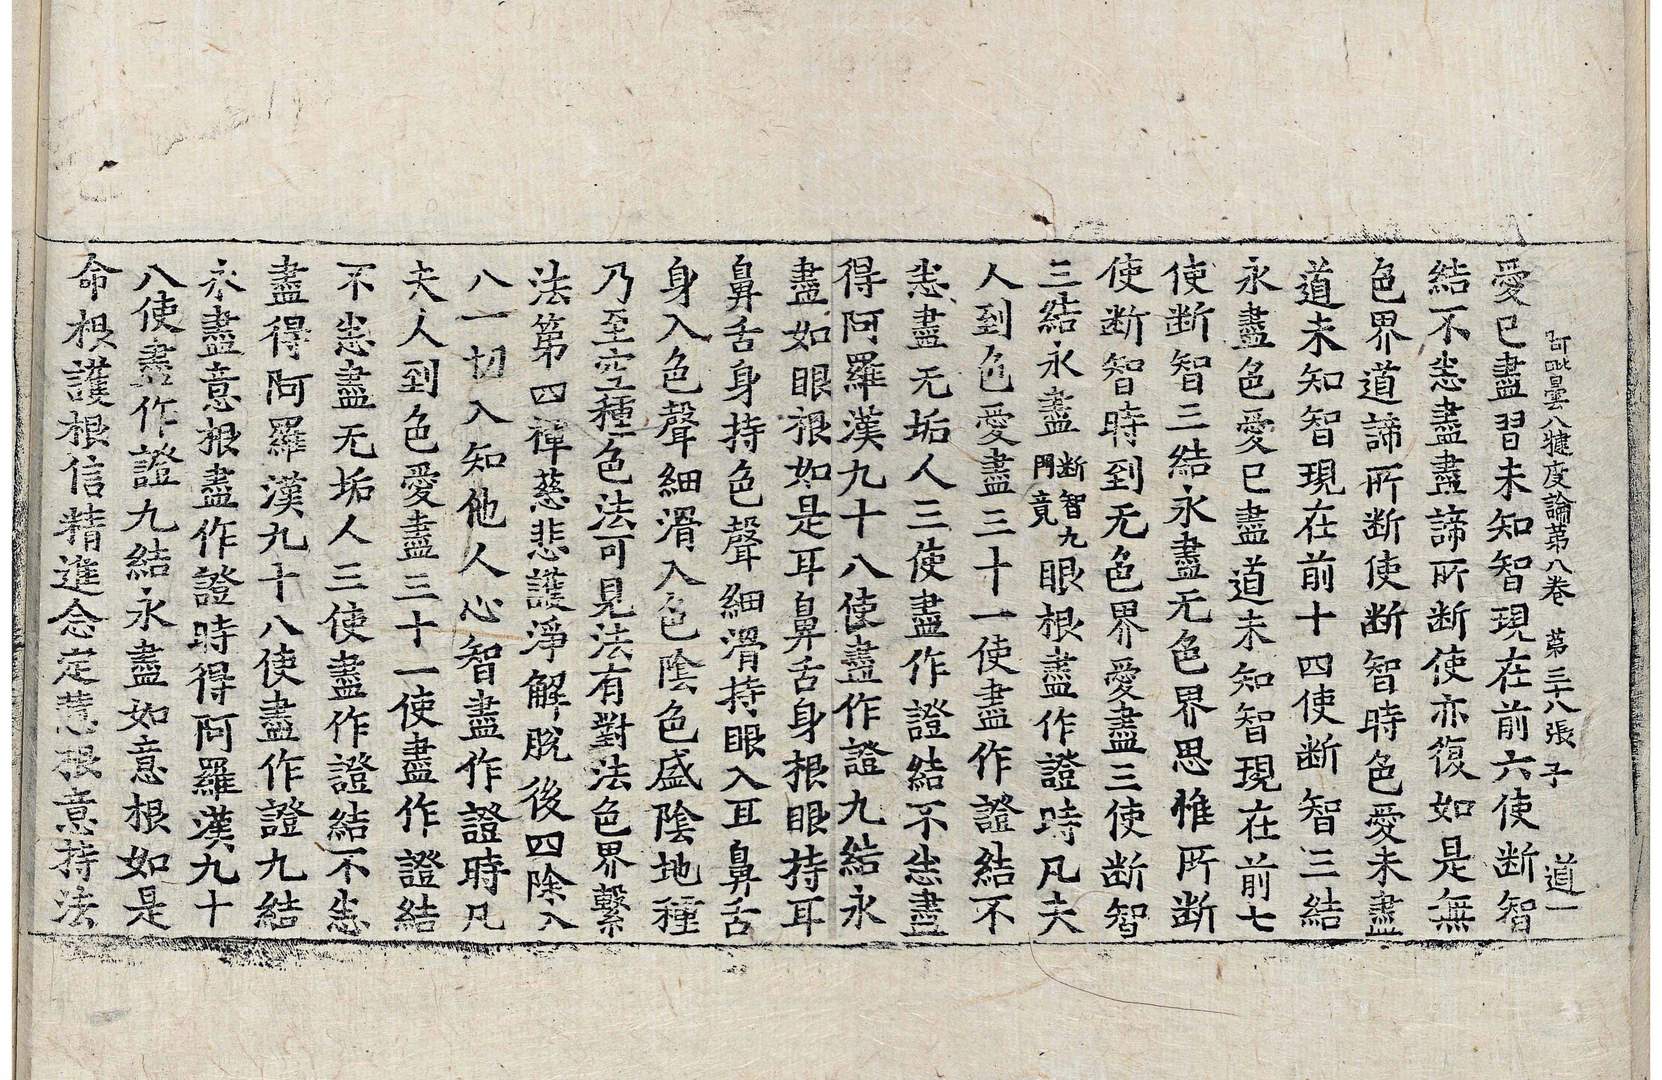 阿毗曇八犍度論第八卷 第三十八張 子 道一
愛已盡習未知智現在前六使断智
結不恙盡盡諦所断使亦復如是無
色界道諦所断使断智時色愛未盡
道未知智現在前十四使断智三結
永盡色愛已盡道未知智現在前七
使断智三結永盡无色界思惟所断
使断智時到无色界愛盡三使断智
三結永盡断智九門竟眼根盡作證時凡夫
人到色愛盡三十一使盡作證結不
恙盡无垢人三使盡作證結不恙盡
得阿羅漢九十八使盡作證九結永
盡如眼根如是耳鼻舌身根眼持耳
鼻舌身持色聲細滑持眼入耳鼻舌
身入色聲細滑入色陰色盛陰地種
乃至空種色法可見法有對法色界繫
法第四禪慈悲護淨解脫後四除入
八一切入知他人心智盡作證時凡
夫人到色愛盡三十一使盡作證結
不恙盡无垢人三使盡作證結不恙
盡得阿羅漢九十八使盡作證九結
永盡意根盡作證時得阿羅漢九十
八使盡作證九結永盡如意根如是
命根護根信精進念定慧根意持法